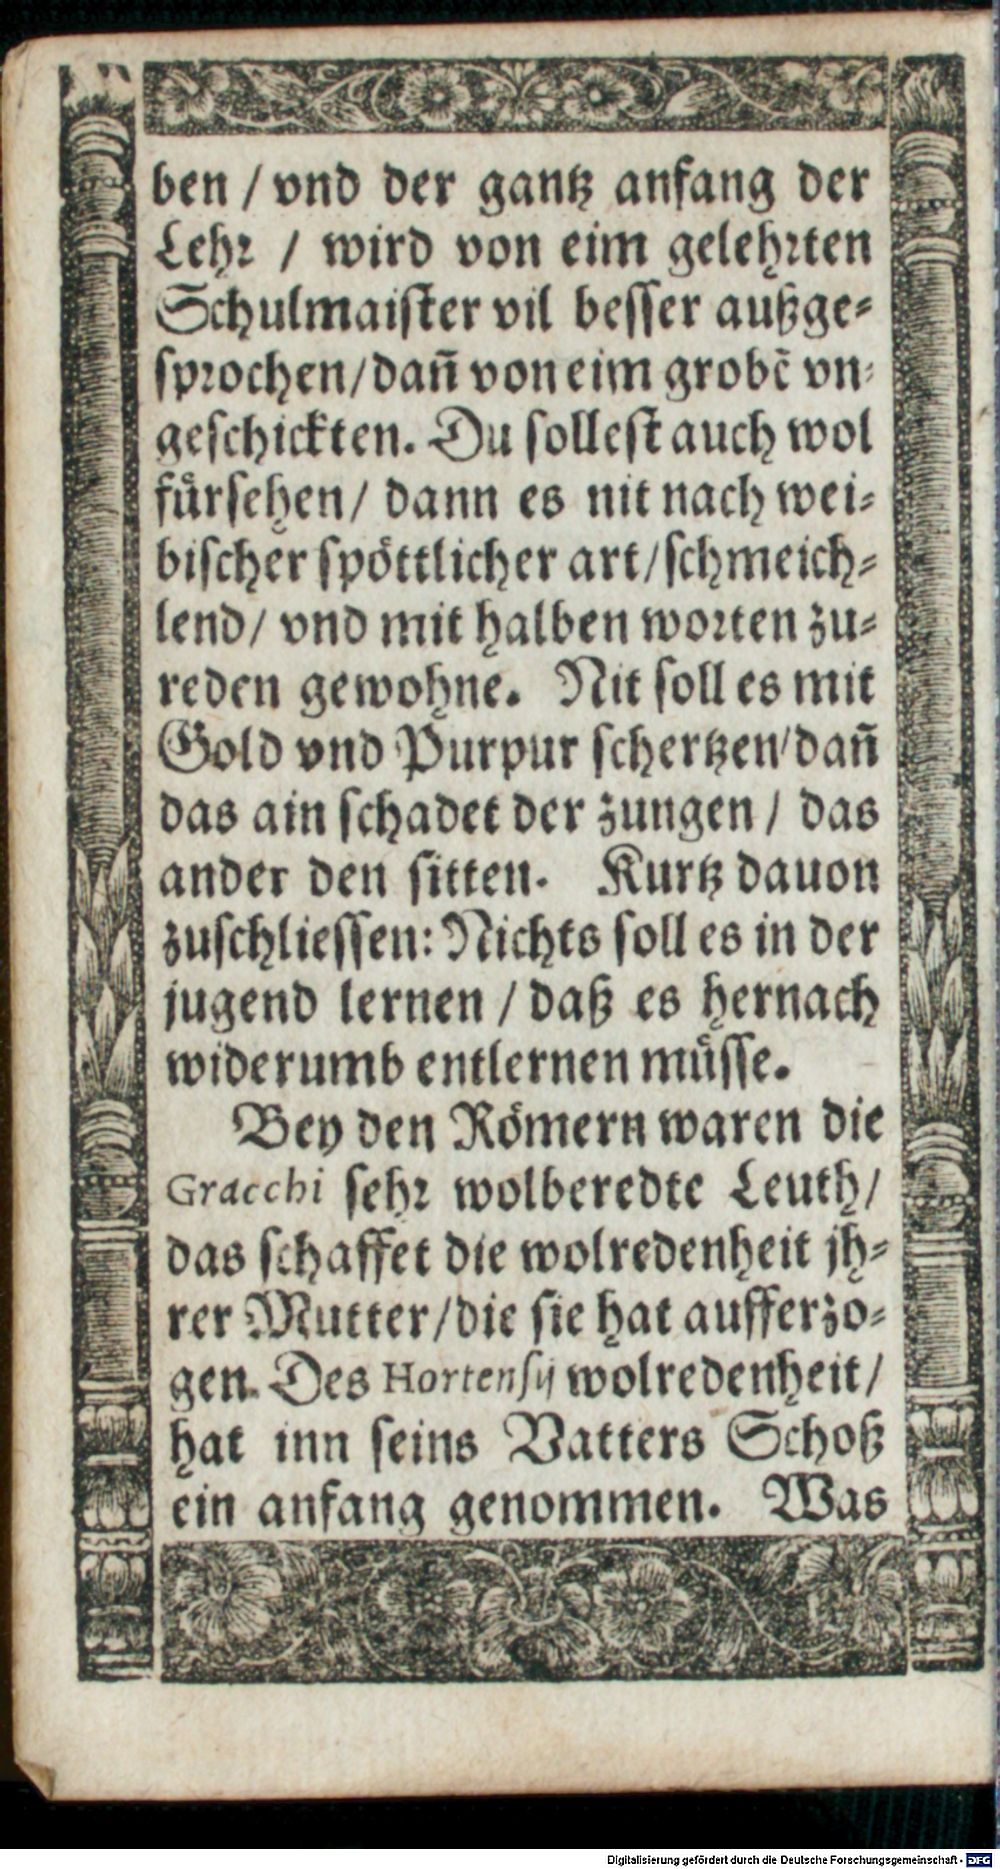 ben / vnd der gantz anfang der
Lehꝛ / wird von eim gelehꝛten
Schulmaister vil besser außge-
spꝛochen/dañ von eim grobē vn-
geschickten. Du sollest auch wol
fürsehen/ dann es nit nach wei-
bischer spöttlicher art/schmeich-
lend/ vnd mit halben woꝛten zu-
reden gewohne. Nit soll es mit
Gold vnd Purpur schertzen/dañ
das ain schadet der zungen / das
ander den sitten. Kurtz dauon
zuschliessen: Nichts soll es in der
jugend lernen / daß es hernach
widerumb entlernen müsse.
Bey den Römern waren die
Gracchi sehꝛ wolberedte Leuth/
das schaffet die wolredenheit jh-
rer Mutter/die sie hat aufferzo-
gen. Des Hortensij wolredenheit/
hat inn seins Vatters Schoß
ein anfang genommen. Was
Digitalisierung gefördert durch die Deutsche Forschungsgemeinschaft - DFG